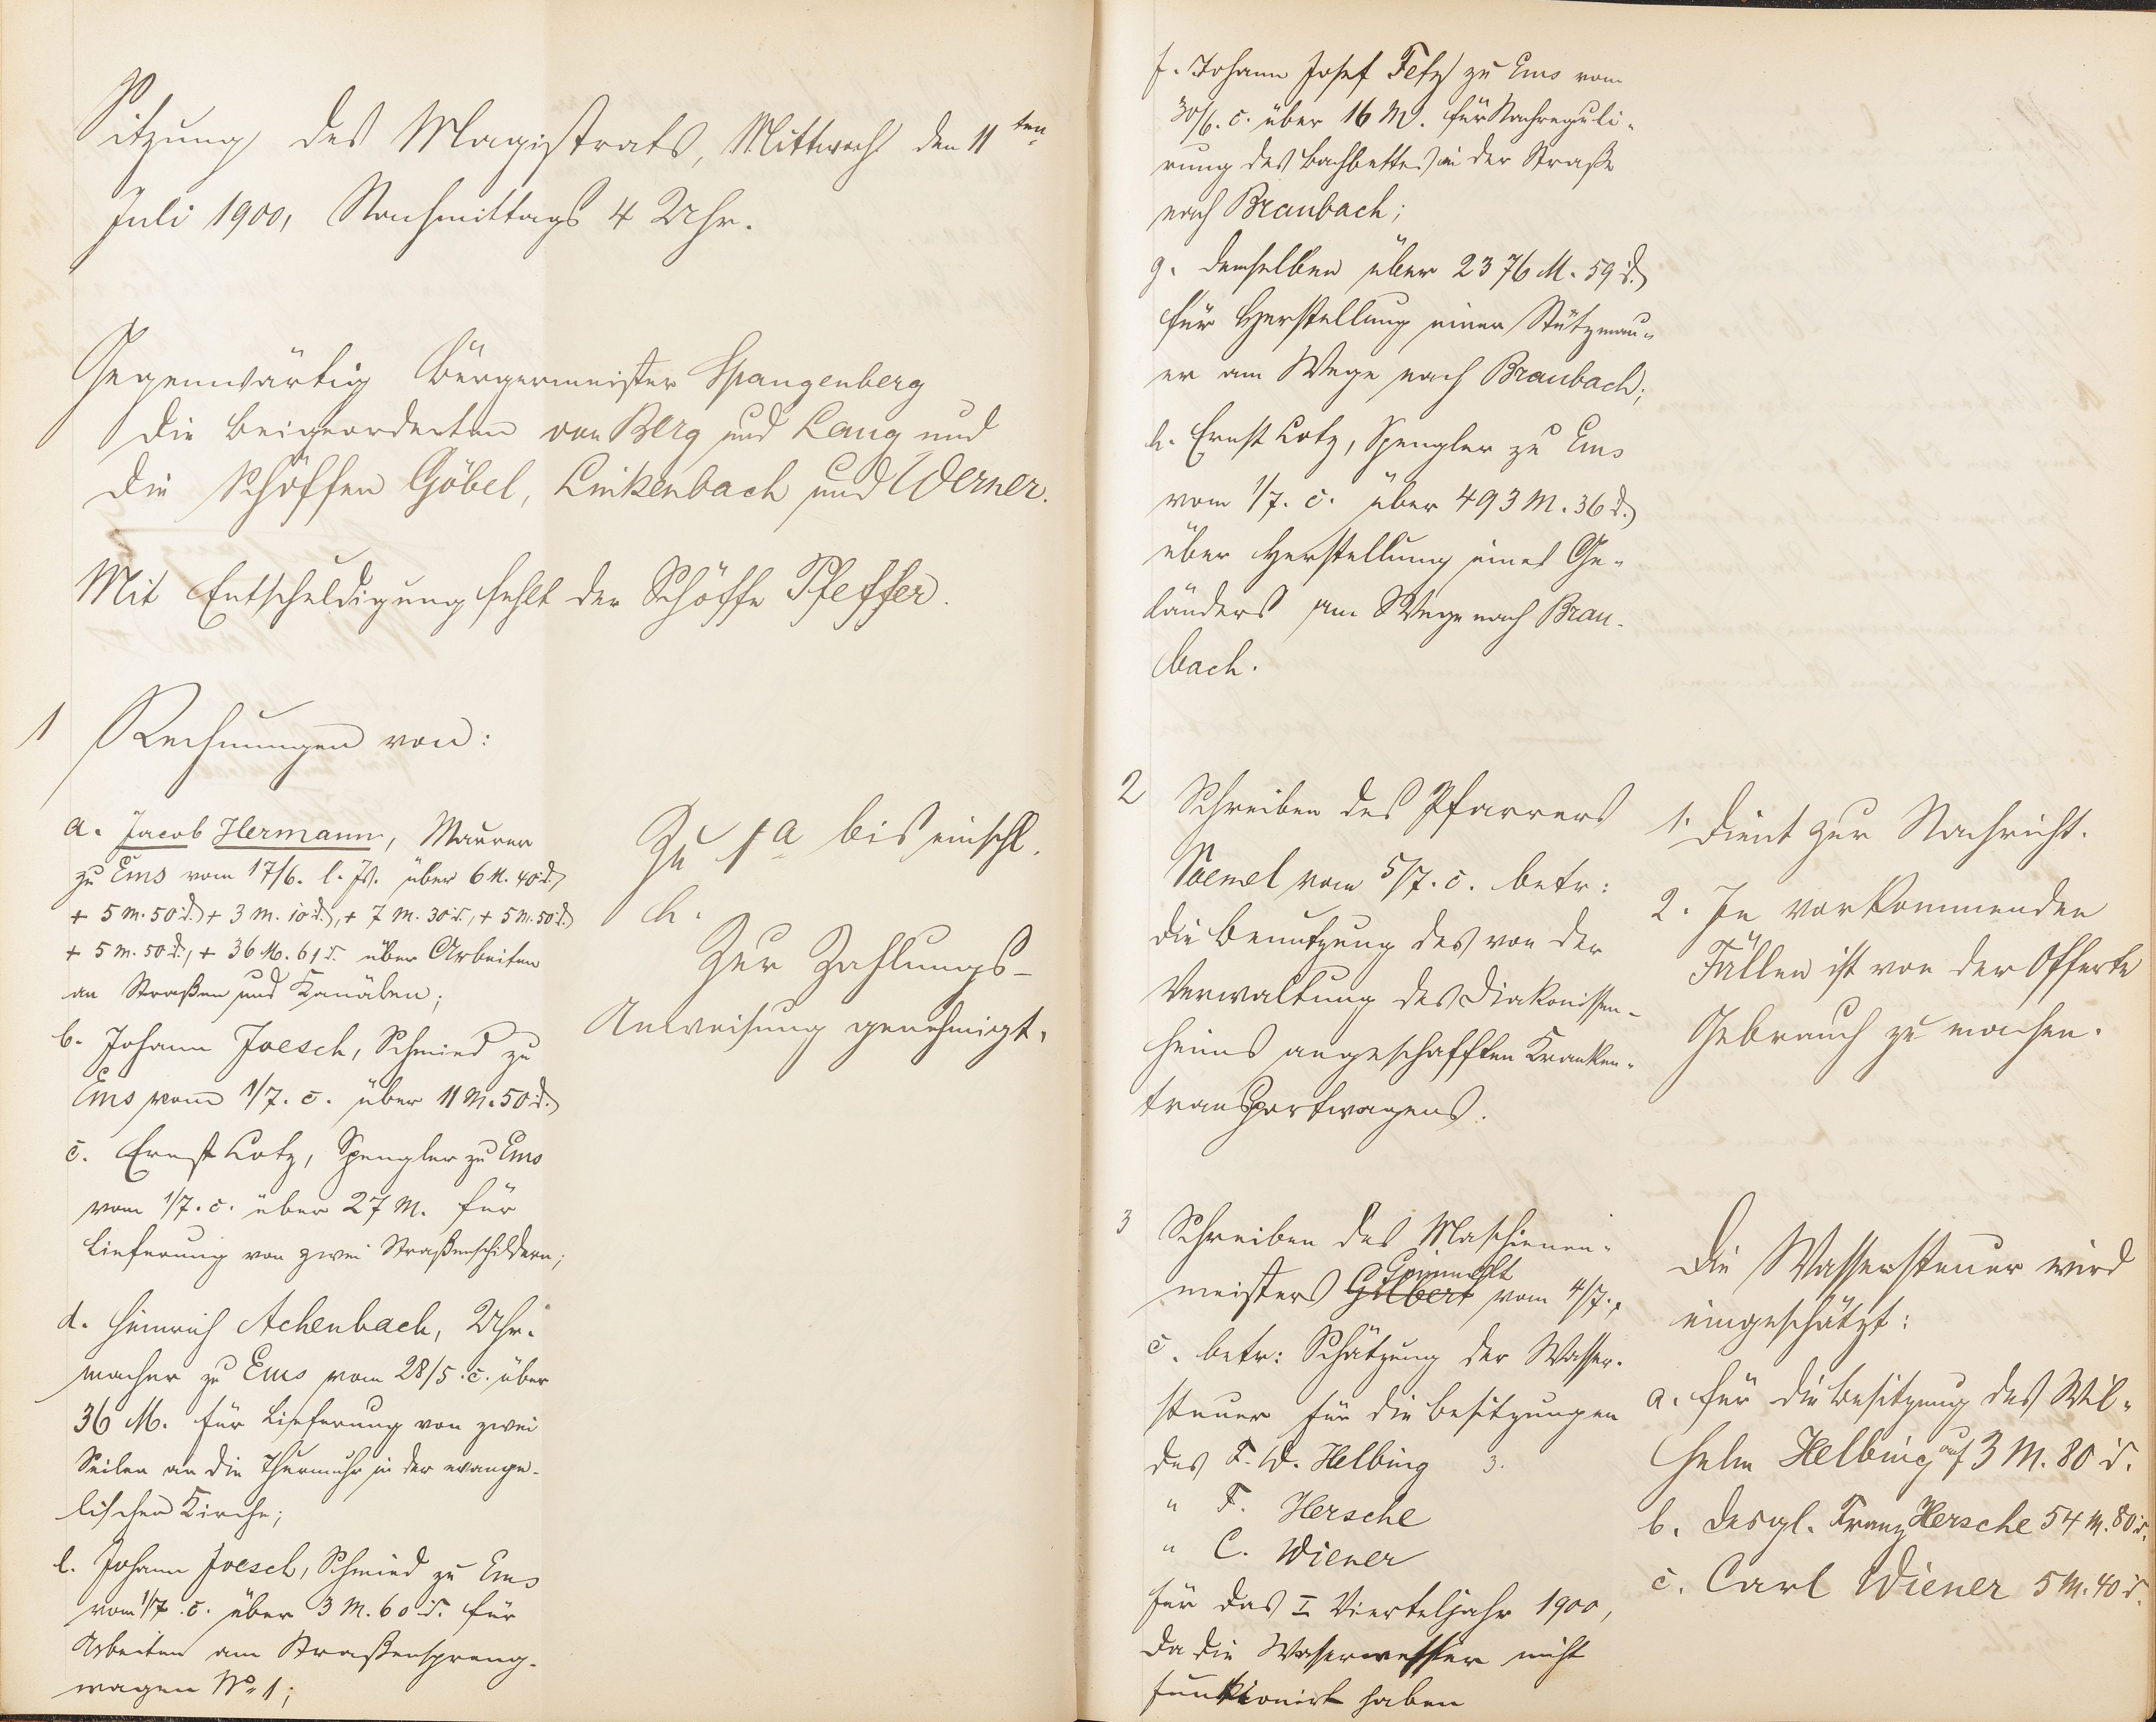 Sitzung des Magistrats, Mittwoch den 11ten
Juli 1900, Nachmittags 4 Uhr.
Gegenwärtig Bürgermeister Spangenberg
die Beigeordneten von Berg und Lang und
die Schöffen Göbel, Linkenbach und Werner.
Mit Entschuldigung fehlt der Schöffe Pfeffer.
1 Rechnungen von:
a. Jacob Hermann, Maurer
zu Ems vom 17/6. l. Js. über 6 M. 40 d.
+ 5 M. 50 d. + 3 M. 10 d., + 7 M. 30 d., + 5 M. 50 d.
+ 5 M. 50 d., + 36 M. 61 d. über Arbeiten
an Straßen und Kanälen;
b. Johann Joesch, Schmied zu
Ems vom 1/7. c. über 11 M. 50 d.
c. Ernst Lotz, Spengler zu Ems
vom 1/7. c. über 27 M. für
Lieferung von zwei Straßenschildern;
d. Heinrich Achenbach, Uhr-
macher zu Ems vom 28/5. c. über
36 M. für Lieferung von zwei
Seilen an die Thurmuhr in der evange-
lischen Kirche;
e. Johann Joesch, Schmied zu Ems
vom 1/7. c. über 3 M. 60 d. für
Arbeiten am Straßenspreng-
wagen No 1;
Zu 1a bis einschl.
h.
Zur Zahlungs-
Anweisung genehmigt.
f. Johann Josef Fetz zu Ems vom
30/6. c. über 16 M. für Nachreguli-
rung des Bachbettes in der Straße
nach Braubach;
g. demselben über 2376 M. 59 d.
für Herstellung einer Stützmau-
er am Wege nach Braubach;
h. Ernst Lotz, Spengler zu Ems
vom 1/7. c. über 493 M. 36 d.
über Herstellung eines Ge-
länders am Wege nach Brau-
bach.
2 Schreiben des Pfarrers
vom 5/7. c. betr:
die Benutzung des von der
Verwaltung des Diakonissen-
heims angeschafften Kranken-
transportwagens.
1. Dient zur Nachricht.
2. In vorkommenden
Fällen ist von der Offerte
Gebrauch zu machen.
3 Schreiben des Maschienen-
meisters Gilbert vom 4/7.
c. betr: Schätzung der Wasser-
steuer für die Besitzungen
des F. W. Helbing 3.
" F. Hersche
" C. Wiener
für das I Vierteljahr 1900,
da die Wassermesser nicht
funktionirt haben
Die Wassersteuer wird
eingeschätzt:
a. für die Besitzung des Wil-
helm Helbing auf 3 M. 80 d.
b. desgl. Franz Hersche 54 M. 80 d.
c. Carl Wiener 5 M. 40 d.